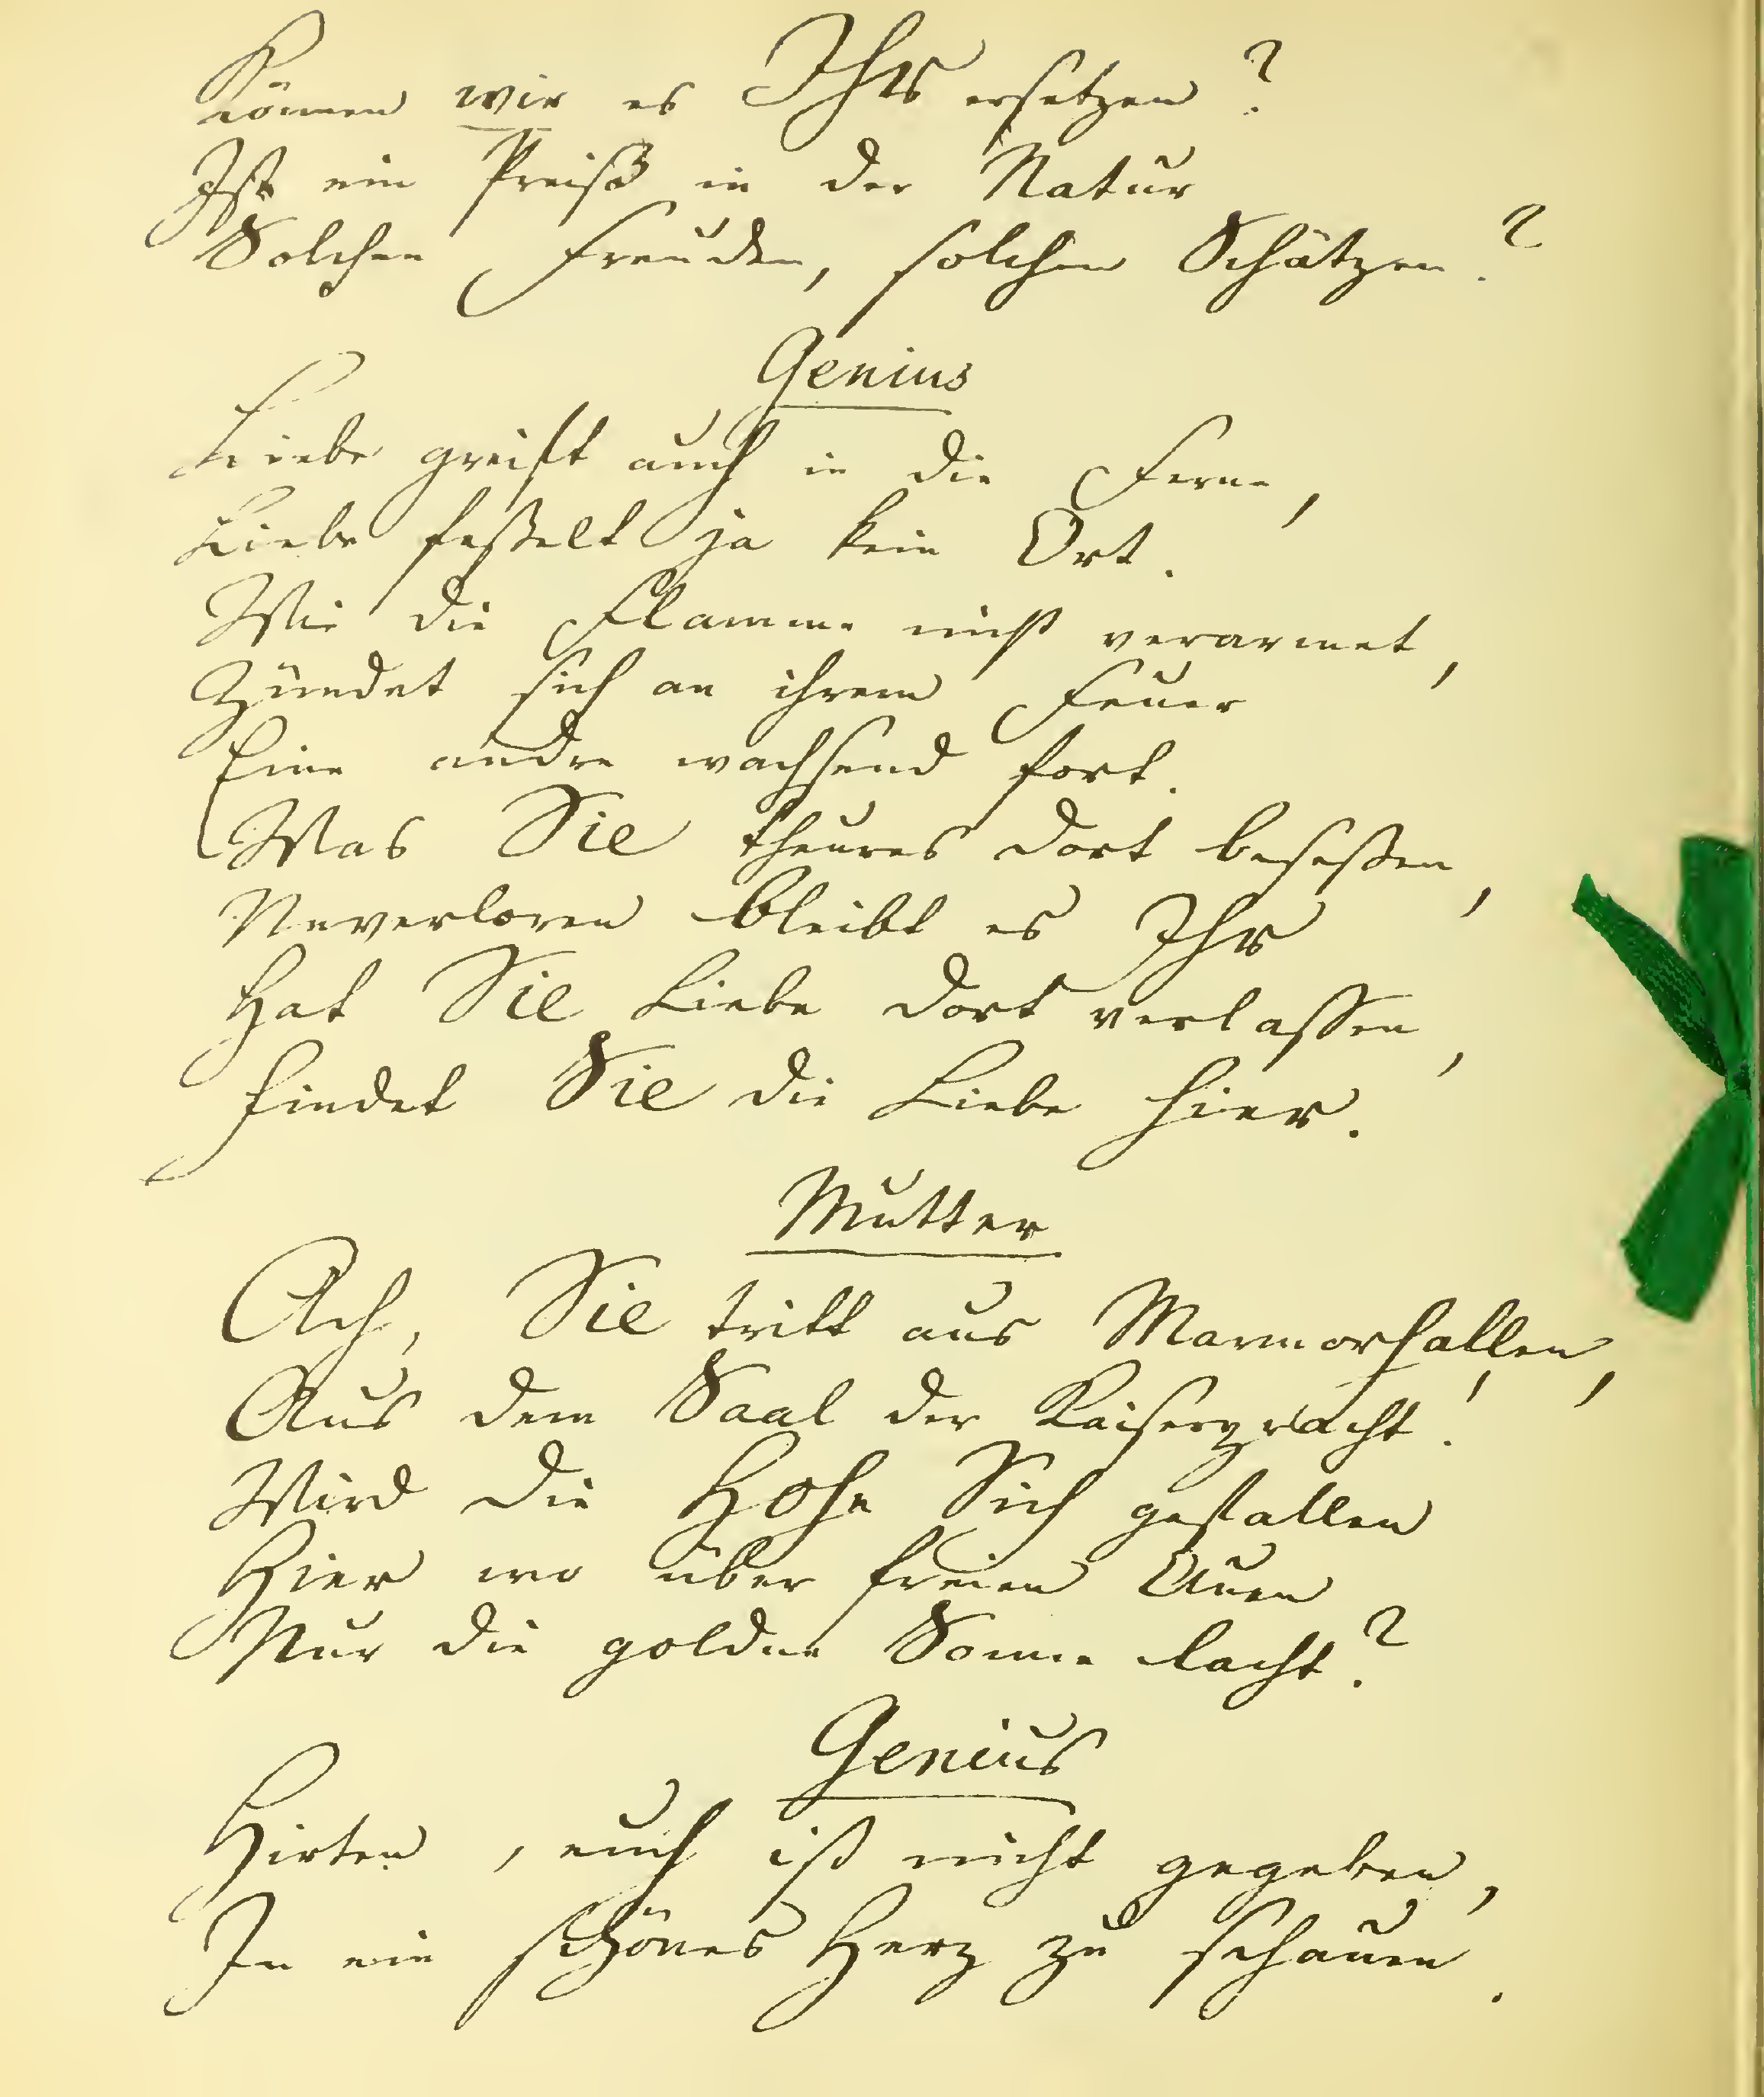 Können wir es Ihr ersetzen?
Ist ein Preiß in der Natur
Solchen Freuden, solchen Schätzen?
Genius
Liebe greift auch in die Ferne,
Liebe feßelt ja kein Ort.
Wie die Flamme nicht verarmet,
Zündet sich an ihrem Feuer
Eine andre wachsend fort.
Was Sie theures dort beseßen,
Unverloren bleibt es Ihr
Hat Sie Liebe dort verlassen,
Findet Sie die Liebe hier.
Mutter
Ach, Sie tritt aus Marmorhallen,
Aus dem Saal der Kaiserpracht!
Wird die Hohe Sich gefallen
Hier wo über freien Auen
Nur die goldne Sonne lacht?
Genius
Hirten, euch ist nicht gegeben,
In ein schönes Herz zu schauen.